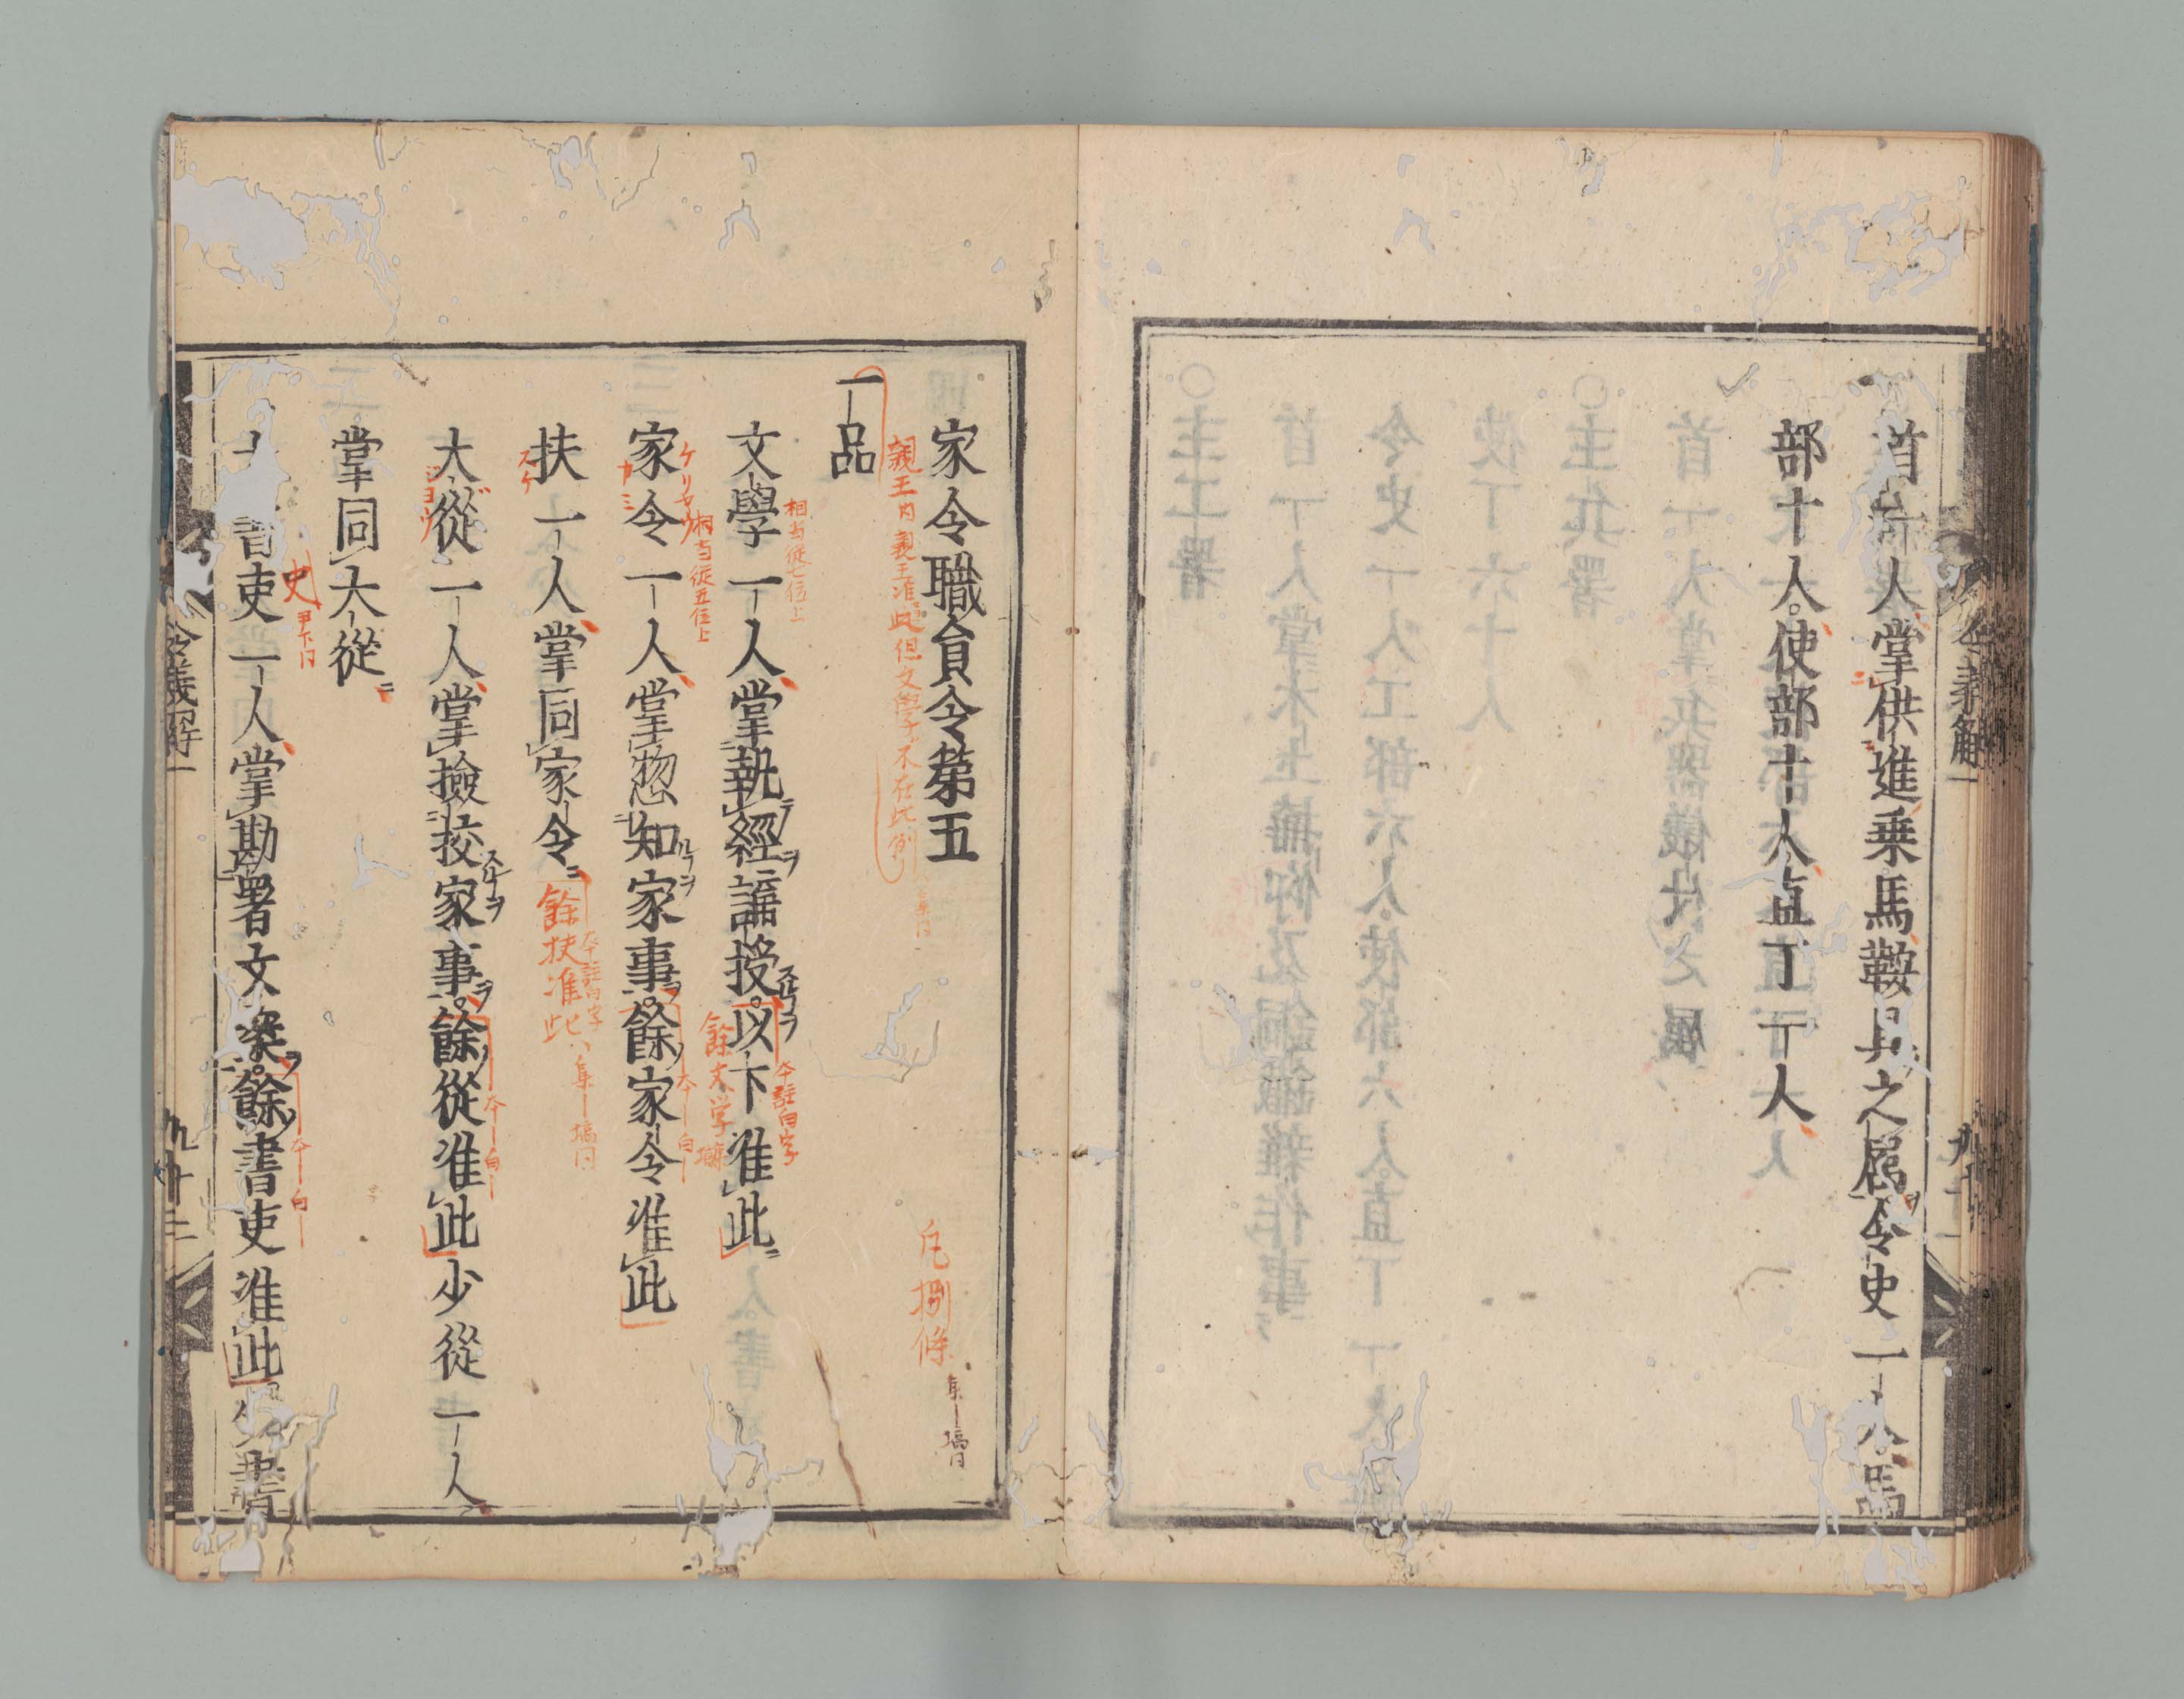 首一人掌供進乗馬鞍具之属令史一人馬
部十人使部十人直丁一人
令義解一
家令職貟令第五
凢捌條
親王内親王准此但文學不在此例
一品
相当從七位上
文學一人掌執經講授以下准此
本註白字
餘文学
相当從五位上
家令一人掌惣知家事餘家令准此
扶一人掌同家令
餘扶准此
本註白字
大從一人掌撿挍家事餘從准此少從一人
掌同大從
史
書吏一人掌勘署文案餘書吏准此少書
令義解一
九十二